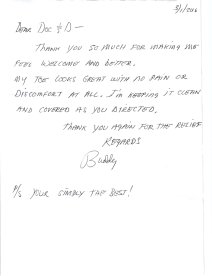 Dear Doc & D —
Thank you so much for making me
feel welcome and better.
My toe looks great with no pain or
discomfort at all. I'm keeping it clean
and covered as you directed.
Thank you again for the relief
Regards
Buddy
P/S Your simply the best!